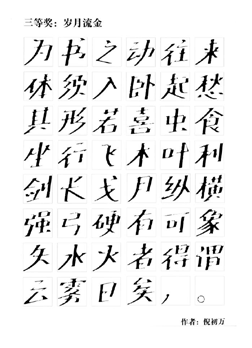 三等奖：岁月流金
为书之动往来
体须入卧起愁
其形若喜虫食
坐行飞木叶利
剑长戈月纵横
强弓硬有可象
矢水火者得谓
云雾日矣，。
作者：倪初万